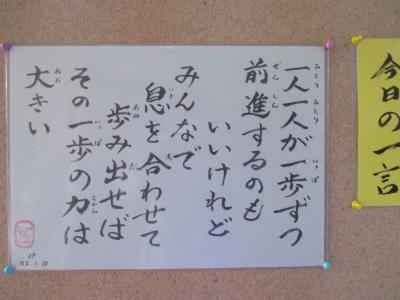 今日の一言
一人一人が一歩ずつ
前進するのも
いいけれど
みんなで
息を合わせて
歩み出せば
その一歩の力は
大きい